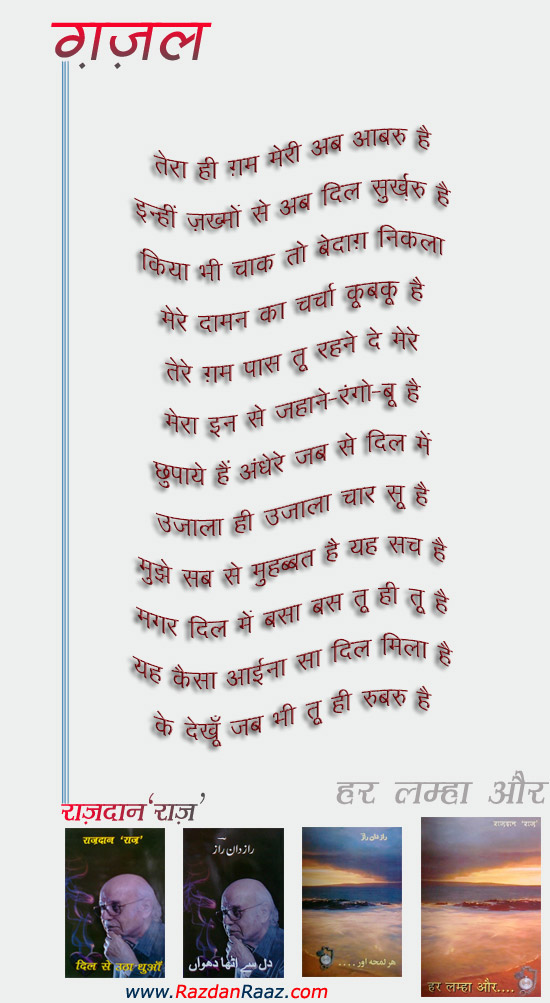 ग़ज़ल
तेरा ही ग़म मेरी अब आबरु है
इन्हीं ज़ख्मों से अब दिल सुर्ख़रु है
किया भी चाक तो बेदाग़ निकला
मेरे दामन का चर्चा कूबकू है
तेरे ग़म पास तू रहने दे मेरे
मेरा इन से जहाने-रंगो-बू है
छुपाये हैं अंधेरे जब से दिल में
उजाला ही उजाला चार सू है
मुझे सब से मुहब्बत है यह सच है
मगर दिल में बसा बस तू ही तू है
यह कैसा आईना सा दिल मिला है
के देखूँ जब भी तू ही रुबरु है
हर लम्हा और
राज़दान 'राज़'
राज़दान 'राज़'
दिल से उठा धुआँ
رازدان رازؔ
دل سے اٹھا دھواں
رازدان رازؔ
ہر لمحہ اور....
राज़दान 'राज़'
हर लम्हा और....
www.RazdanRaaz.com